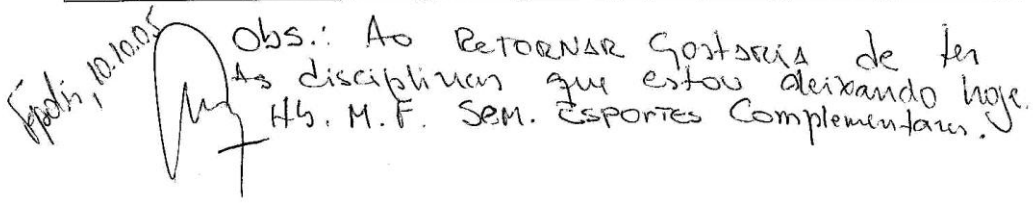 Fpolis, 10.10.05
Obs.: Ao RETORNAR GOSTARIA de ter
As disciplinas que estou deixando hoje.
Hb. M. F. Sem. Esportes Complementares.